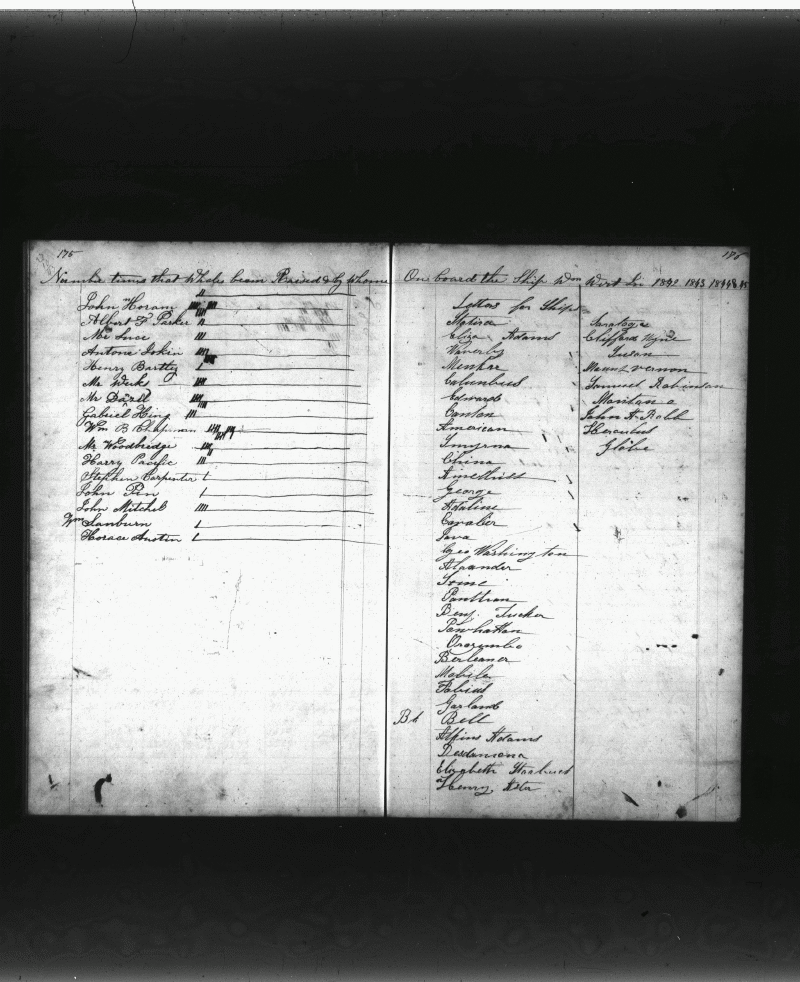 175
Number times that Whales been Raised & by Whome
John Horam
Albert F Parker
Mr Luce
Antone
Henry Bartley
Mr Weeks
Mr Dazell
Gabriel King
Wm B Chapman
Mr Woodbridge
Harry Pacific
Stephen Carpenter
John Pin
John Mitchel
Wm Sanburn
Horace Austin
176
On board the Ship Wm Wirt In 1842 1843 1844 & 45
Letters for Ships
Eliza Adams
Waverly
Mentor
Columbus
Edward
Canton
American
Smyrna
China
Amethist
George
Adaline
Cavalier
Java
Geo Washington
Alexander
Panthean
Benj. Tucker
Powhattan
Ororumbo
Mobile
Fabius
Garland
Bk Bell
Desdamona
Elizabeth Starbuck
Henry Astor
Saratoga
Clifford Wyne
Susan
Mount Vernon
Samuel Robinson
Montano
John A Robb
Hercules
Globe